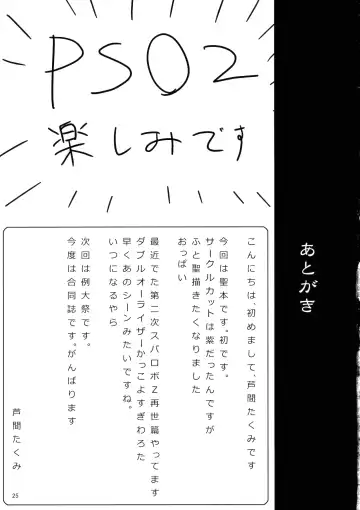 PSO2
楽しみです
あとがき
こんにちは、初めまして、芦間たくみです
今回は聖本です。初です。
サークルカットは紫だったんですが
ふと聖描きたくなりました
おっぱい
最近でた第二次スパロボZ再世篇やってます
ダブルオーライザーかっこよすぎわろた
早くあのシーンみたいですね。
いつになるやら
次回は例大祭です。
今度は合同誌です。がんばります
芦間たくみ
25